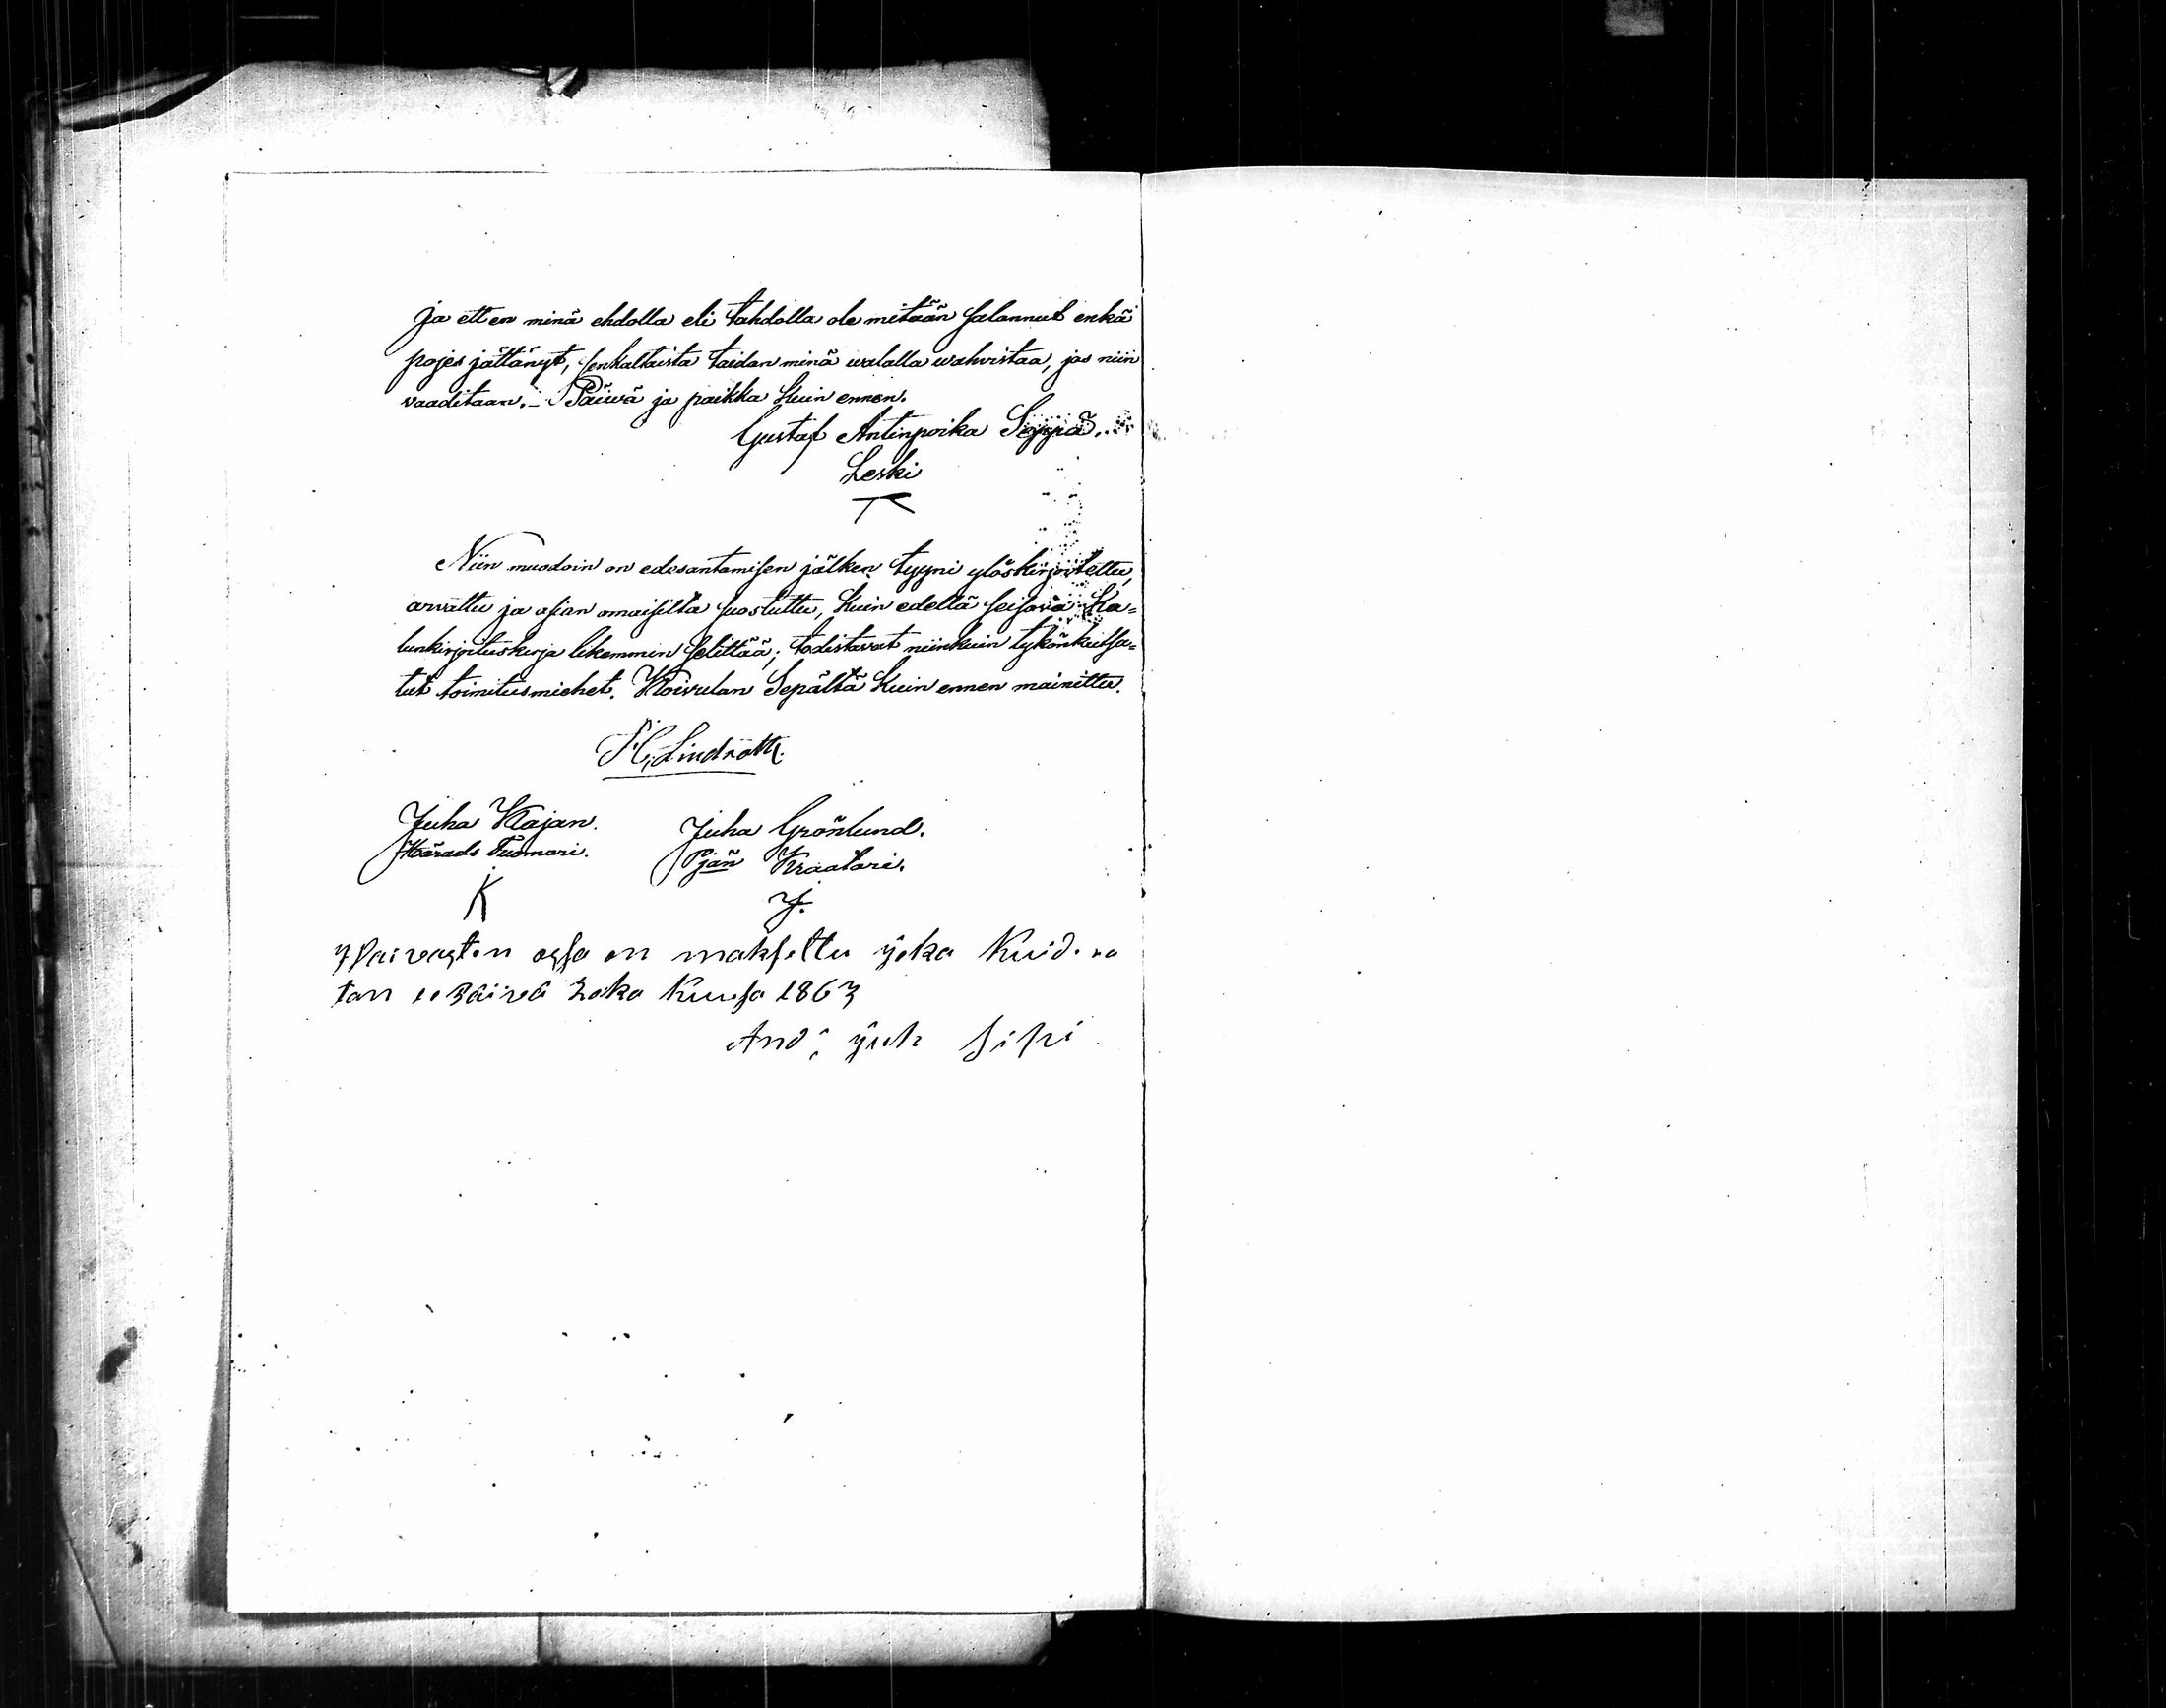 ja etten minä ehdolla eli tahdolla ole mitään salannut enkä
pojes jättänyt, senkaltaista taidan minä walalla wahvistaa, jos niin
vaaditaan. – Päiwä ja paikka kuin ennen.
Gustaf Antinpoika Seppä
Leski
Niin muodoin on edesantamisen jälken tyyni ylöskirjoitettu,
arvattu ja asian omaisilta suostuttu, kuin edellä seisova Ka=
lunkirjoituskirja likemmin selittää; todistavat niinkuin tykönkutsu=
tut toimitusmiehet. Koivulan Sepältä kuin ennen mainittu.
H. Lindroth.
Juha Kajan. Juha Grönlund.
Härads Tuomari. Pjän Kraatari.
K J.
Vaivasten ossa on maksettu joka
tan päivä Loka Kuussa 1863
And: Juh